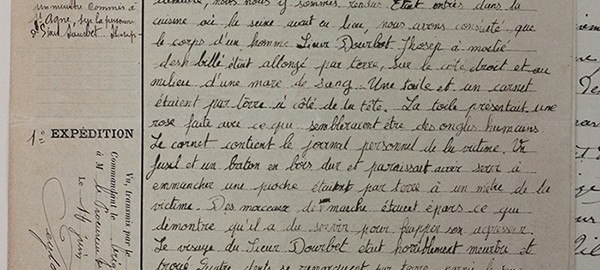 un meurtre commis à
St Agne, sur la personne
nous nous y sommes rendus. Etant entrés dans la
cuisine où la scène avait eu lieu, nous avons constaté que
le corps d'un homme Sieur Dourbot Jhosep à moitié
deshabillé était allongé par terre, sur le côté droit et au
milieu d'une mare de sang. Une toile et un carnet
étaient par terre à côté de la tête. La toile présentait une
rose faite avec ce qui sembleraient être des ongles humains
Le carnet contient le journal personnel de la victime. Un
fusil et un baton en bois dur et paraissait avoir servir à
emmancher une pioche étaient par terre à un mètre de la
victime. Des morceaux de manche étaient épars ce qui
démontre qu'il a du servir pour frapper son agresseur.
Le visage du Sieur Dourbot était horriblement meurtri et
troué. Quatre dents se remarquent sur terre
1° EXPÉDITION
Vu, transmis par le
Commandant
à M. le Procureur
Le Juin